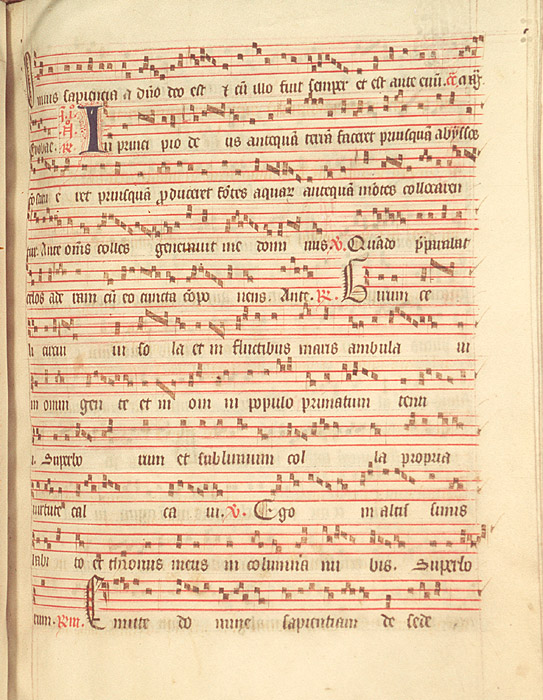 mnis sapiencia a dño deo est & cũ illo fuit semper et est ante euũ.
In princi pio de us antequã terrã faceret priusquã abyssos
e ret priusquã p̱duceret fõtes aquar antequã mõtes collocaren
tur. Ante om̄s colles generauit me domi nus. V. Quãdo p̱parabat
celos ade ram cũ eo cuncta cõpo nens. Ante. R. Girum ce
li circui ui so la et in fluctibus maris ambula ui
in omni gen te et in om ni populo primatum tenu
i. Superbo rum et sublimium col la propria
uirtute cal ca ui. V. Ego in altis simis
habi to et thronus meus in columna nu bis. Superbo
rum. R. iii. E mitte do mine sapientiam de sede